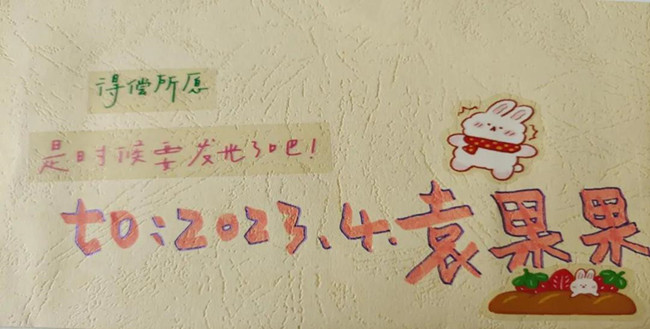 得偿所愿
是时候要发光了吧!
to:2023.4.袁果果